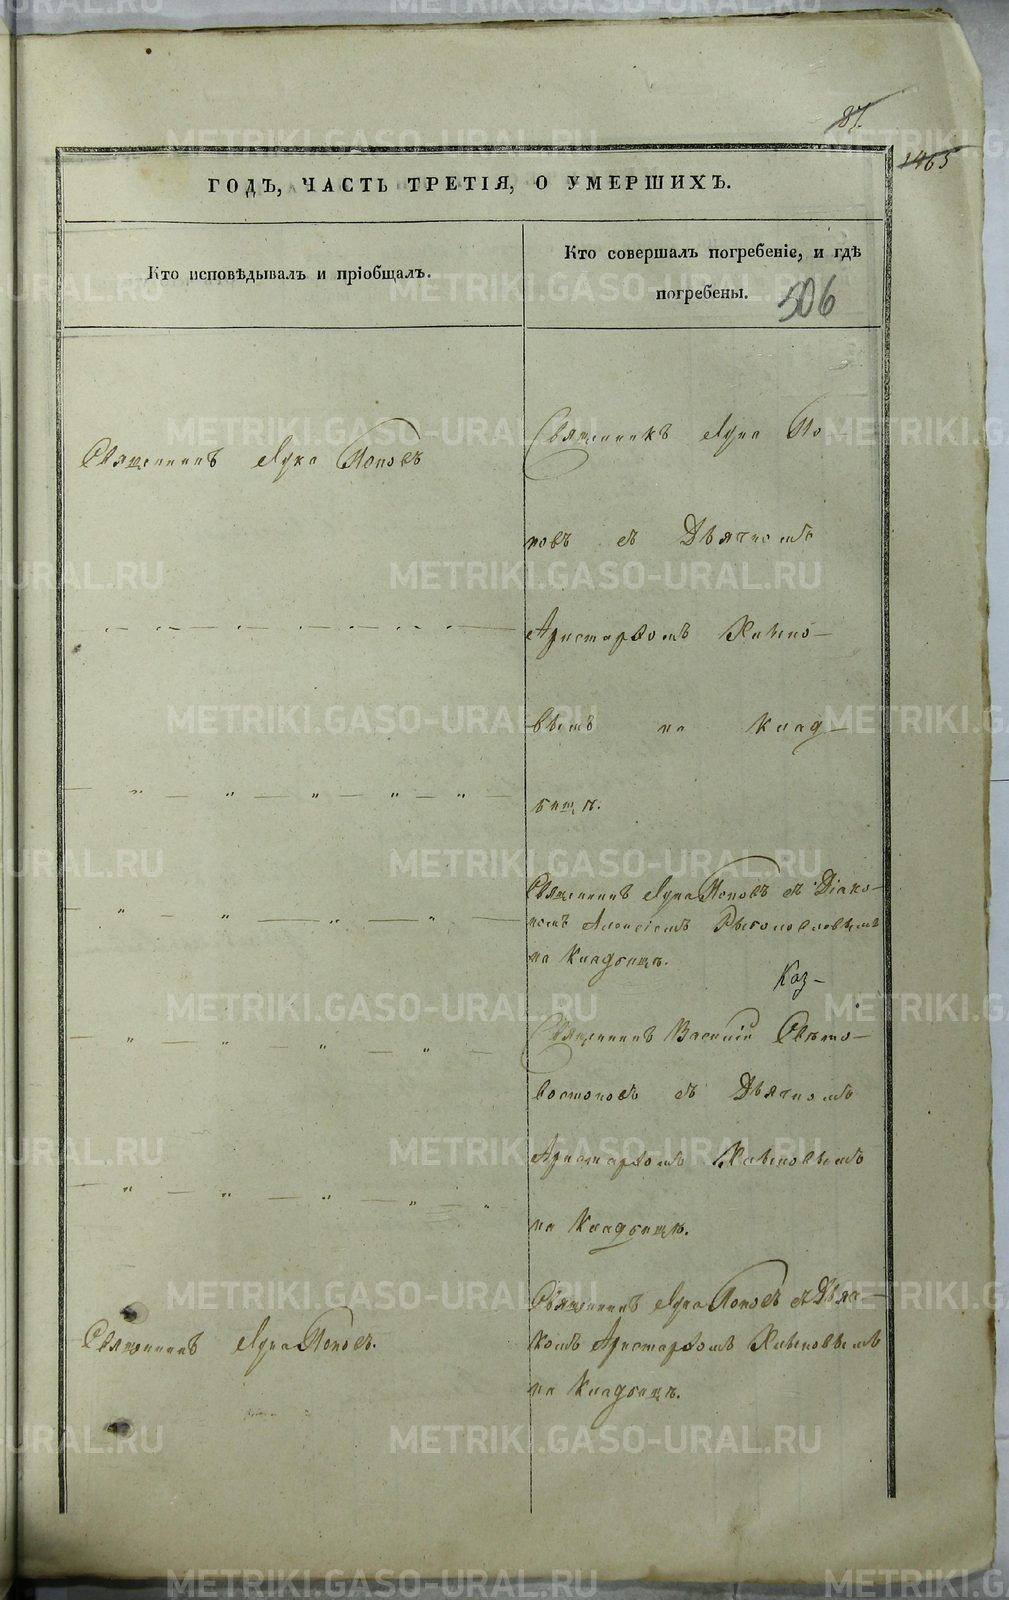 87.
1465
ГОДЪ, ЧАСТЬ ТРЕТІЯ, О УМЕРШИХЪ.
Кто исповѣдывалъ и пріобщалъ.
Кто совершалъ погребеніе, и гдѣ
погребены.
506
Священникъ Лука Поповъ
Священникъ Лука По
повъ съ Дьячкомъ
Аристархомъ Хлыно-
вымъ на клад-
бищѣ.
Священникъ Лука Поповъ съ Діако-
номъ Алексіемъ
на Кладбищѣ.
Каз-
Священникъ Василій Свѣто-
востоковъ съ Дьячкомъ
Аристархомъ Хлыновымъ
на Кладбищѣ.
Священникъ Лука Поповъ съ Дьяч-
комъ Аристархомъ Хлыновымъ
на Кладбищѣ.
Священникъ Лука Поповъ.
METRIKI.GASO-URAL.RU